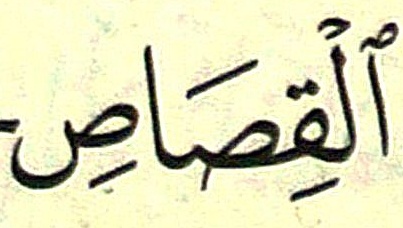 ٱلْقِصَاصِ